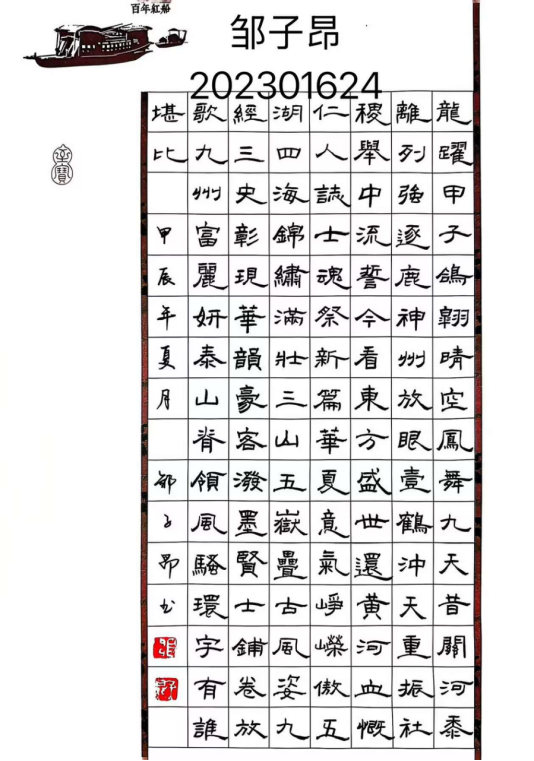 百年紅船
邹子昂
202301624
龍躍甲子鴿翱晴空鳳舞九天昔關河黍
離列強逐鹿神州放眼壹鶴沖天重振社
稷舉中流誓今看東方盛世還黃河血慨
仁人誌士魂祭新篇華夏意氣崢嶸傲五
湖四海錦繡滿壯三山五嶽疊古風姿九
經三史彰現華韻豪客潑墨賢士鋪卷放
歌九州富麗妍泰山脊領風騷環宇有誰
堪比 甲辰年夏月 邹子昂书